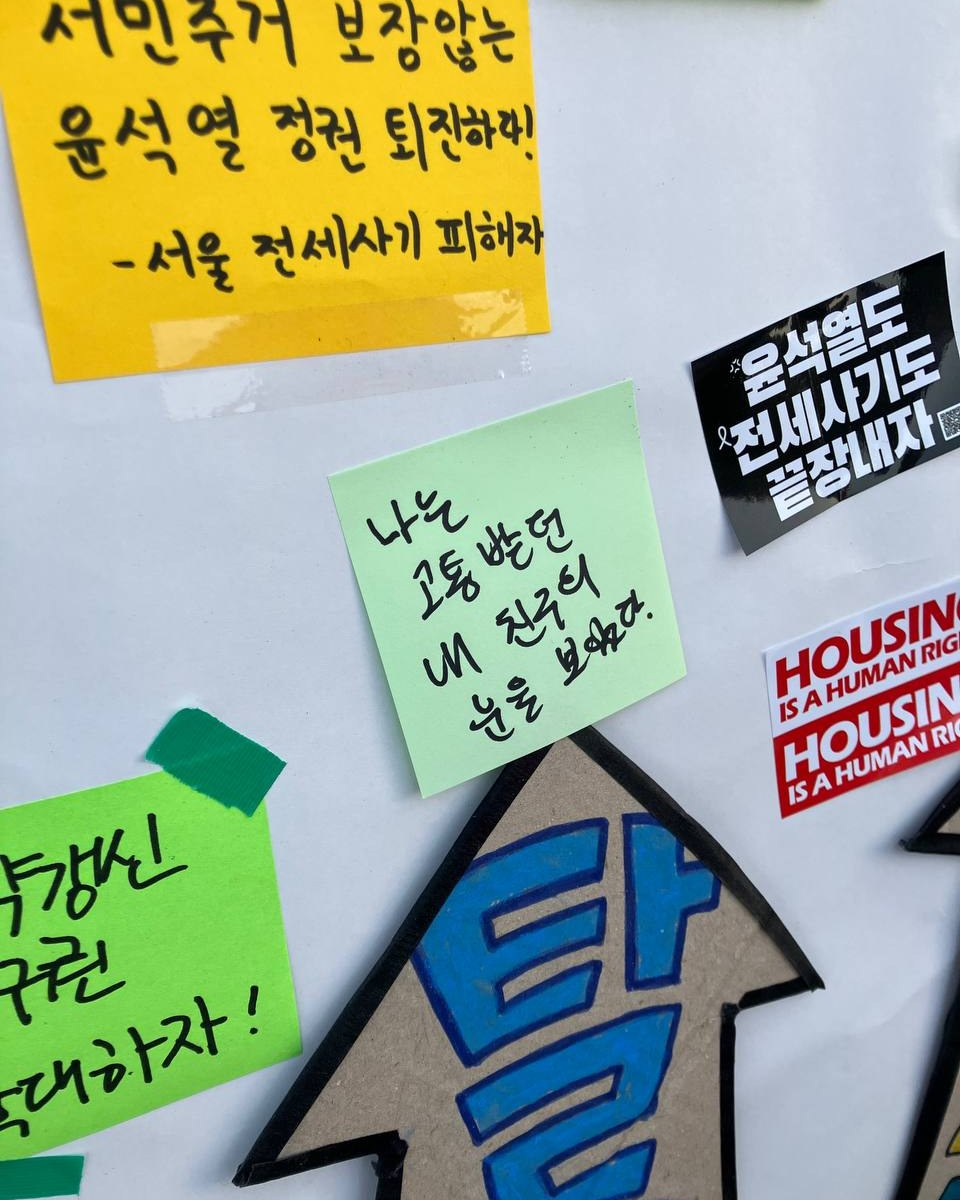 서민주거 보장않는
윤석열 정권 퇴진하라!
-서울 전세사기 피해자
윤석열도
전세사기도
끝장내자
나는
고통받던
내 친구의
눈을 보았다.
HOUSING
IS A HUMAN RIG
HOUSIN
IS A HUMAN RIG
약갱신
구권
확대하자!
탈